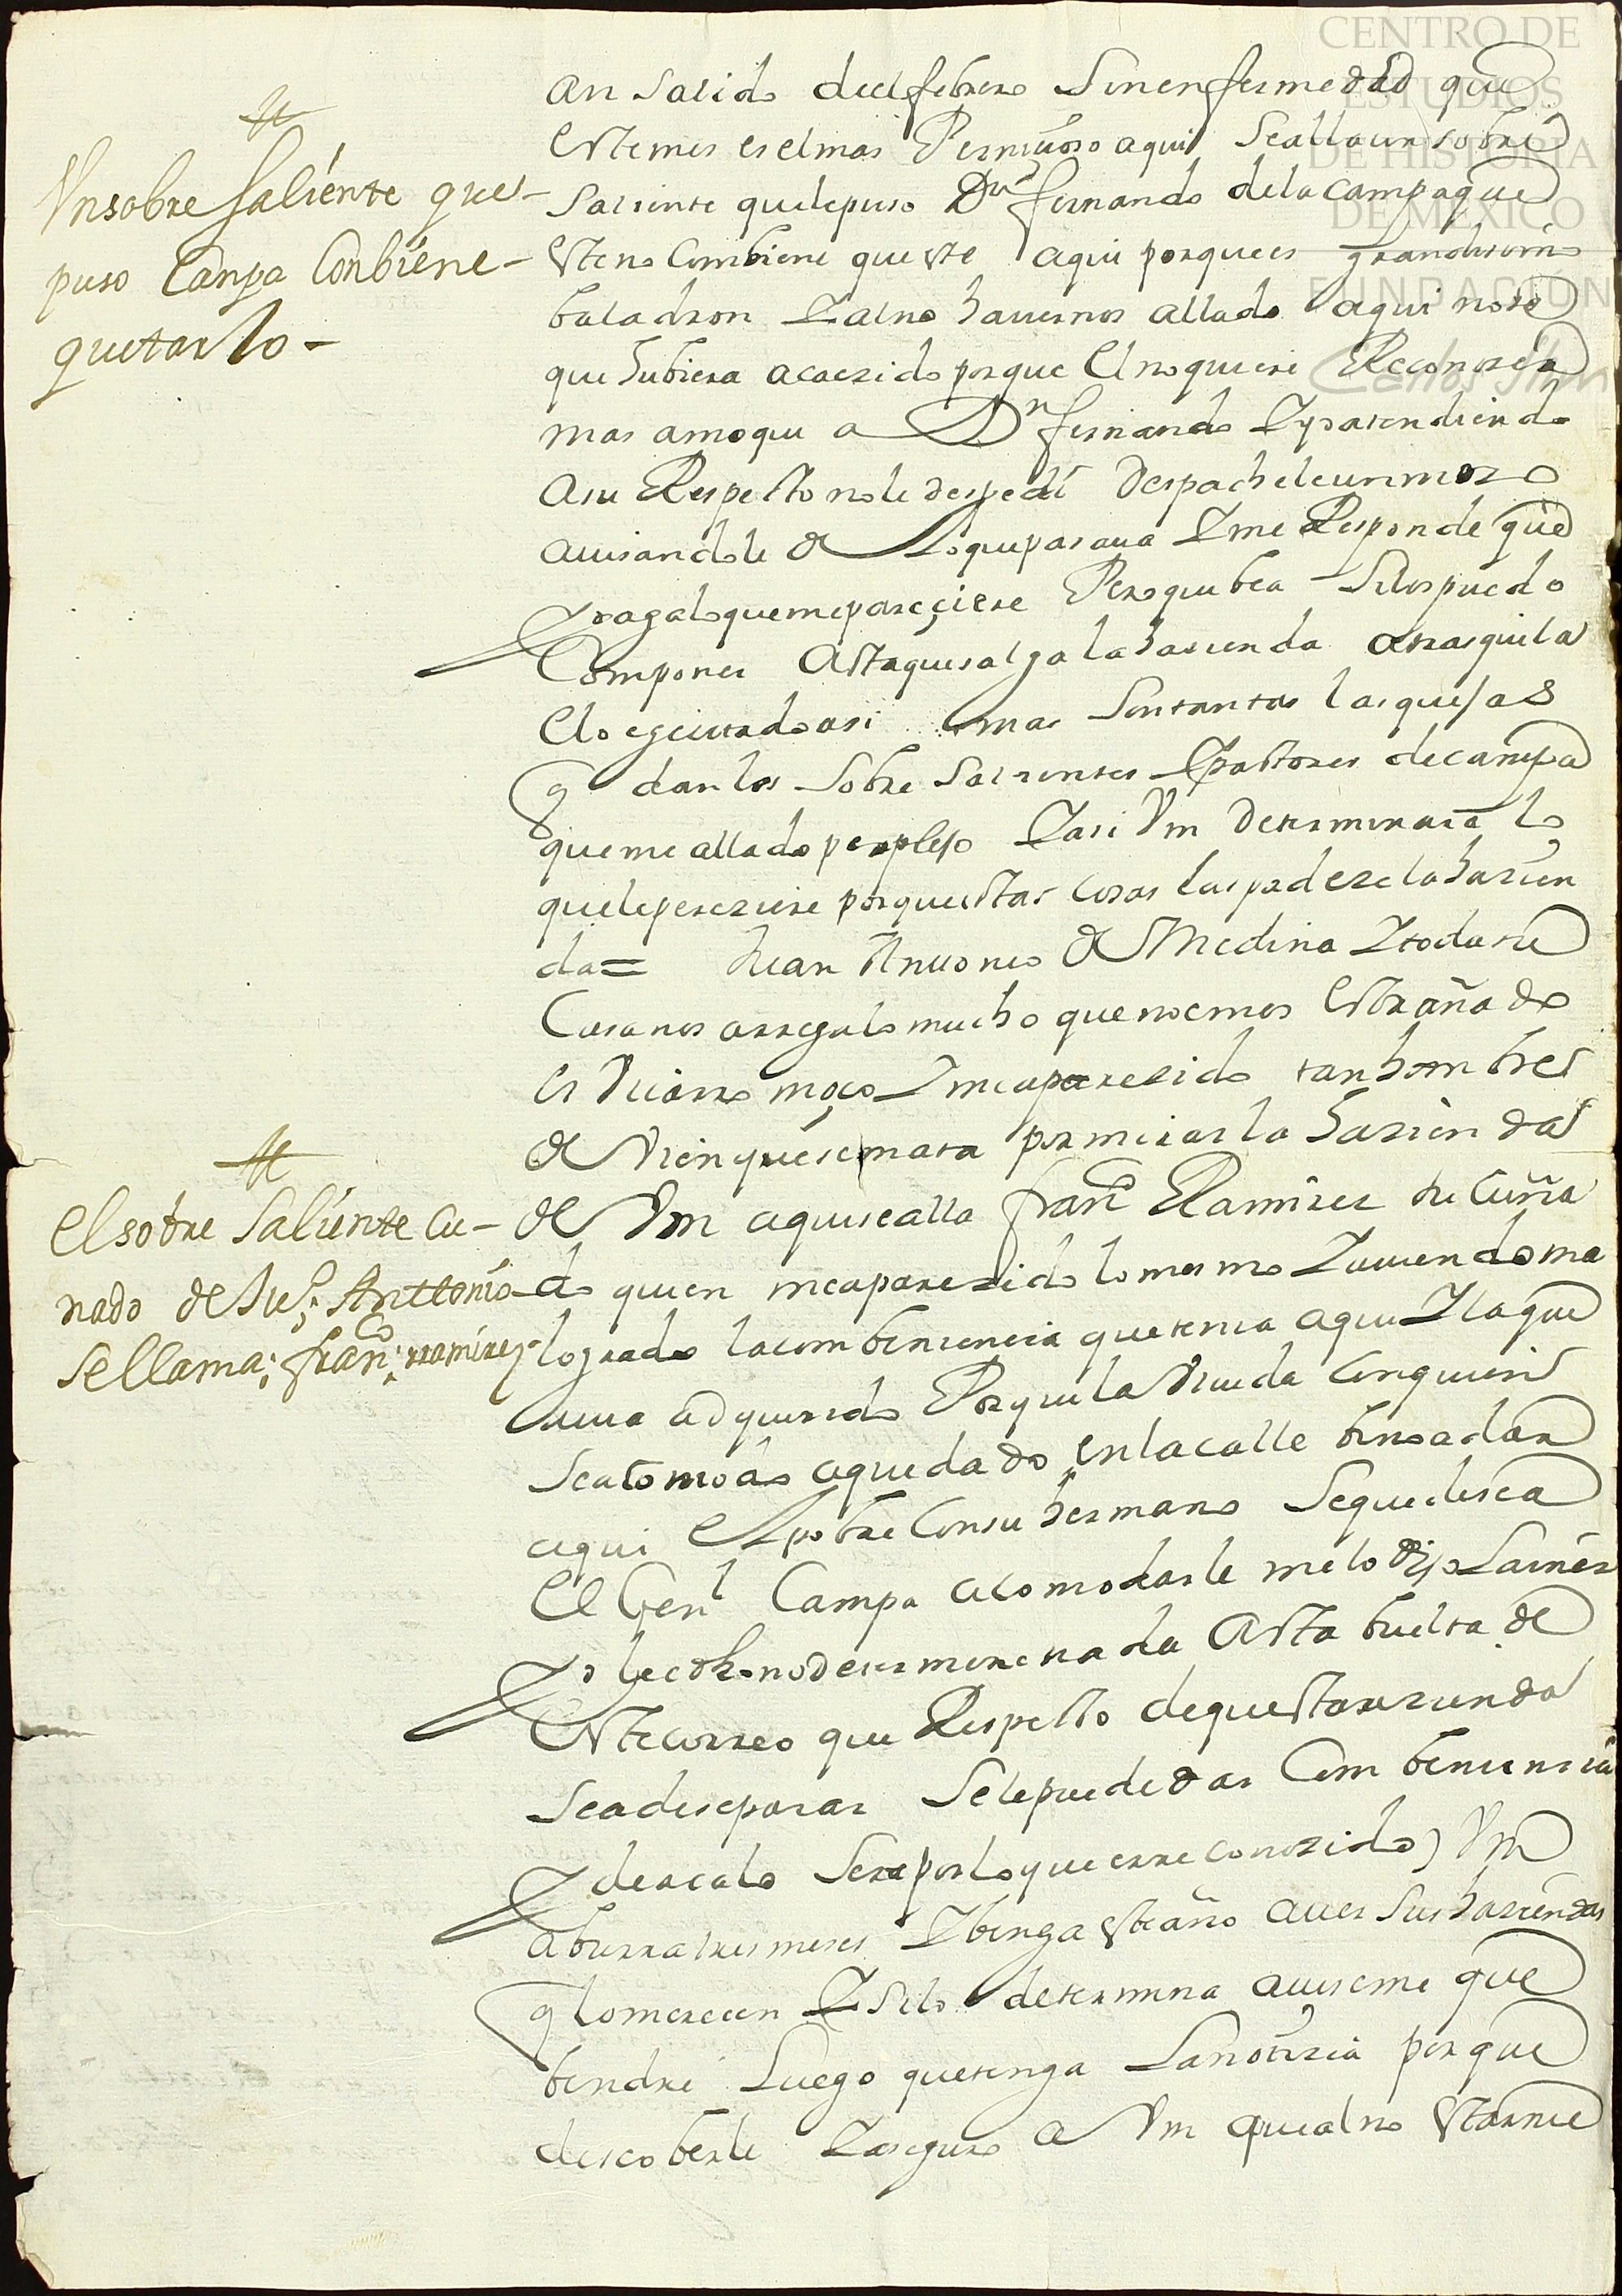 CENTRO DE
ESTUDIOS
DE HISTORIA
DE MÉXICO
FUNDACIÓN
Carlos Slim
Vn sobre saliente que
puso Canpa Conbiene
quitarlo
an salido deel febrero sin enfermedad que
este mes es el mas Perniçioso aqui se alla un sobre
saliente que le puso Dn fernando de la campa que
este no Combiene que este aqui porque es grandisimo
baladron Y al no hauernos allado aqui no se
que hubiera acaezido porque el no quiere Reconozer
mas amo que a Dn fernando Y yo atendiendo
a su Respecto no le despedi despachele un mozo
auisandole de lo que pasaua Y me Responde que
Yo aga lo que me pareçiere Pero que bea si los puedo
Componer asta que salga la hazienda a trasquila
e lo egecutado asi mas son tantas las quejas
q dan los sobre salientes Y pastores de campa
que me allado perplejo Y asi Vm determinara lo
que le pereziere porque estas cosas las padeze la hazien
da = Juan Antonio de Medina Y toda su
Casa nos arregalo mucho que no emos estrañado
es bizarro moço Y me a parezido tan hombre
de bien que se mata por mirar la hazienda
de Vm aqui se alla franco Ramires su Cuña
do quien me a parezido lo mesmo Y auiendo ma
logrado la combeniencia que tenia aqui Y la que
auia adquirido Porque la Viuda con quien
se acomodo a quedado en la calle bino a dar
aqui el pobre Con su hermano se que desea
El Genl Campa acomodarle me lo dijo Lainez
Yo le e dho no determine nada asta buelta de
este correo que Respecto de que esta hazienda
se a de separar se le puede dar Combeniencia
Y de acalo sera por lo que e rreconozido) Vm
aburra tres meses Y benga este año a uer sus haziendas
q lo merecen Y si lo determina auiseme que
bendre luego que tenga la notizia porque
deseo berle Y aseguro a Vm que al no estarme
El sobre saliente cu-
ñado de Jun Anttonio
se llama; franco rramirez